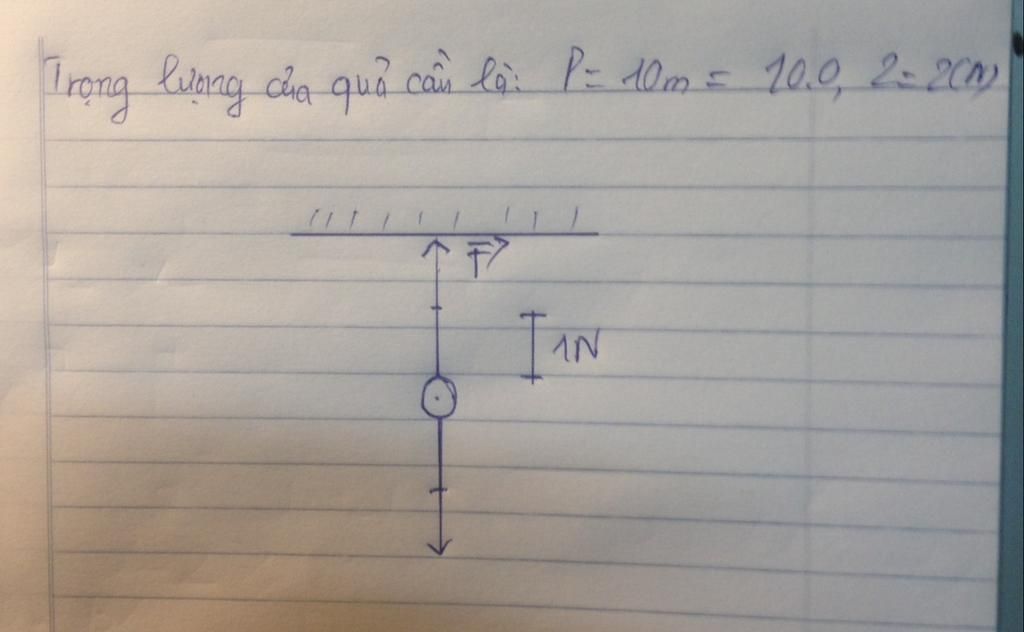 Trọng lượng của quả cầu là: P = 10m = 10.0,2 = 2(N)
F
1N